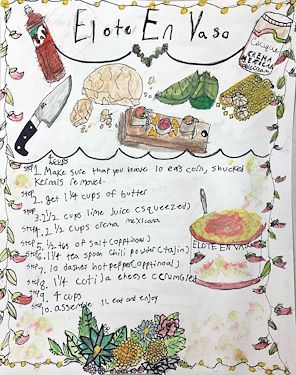 Eloto En Vaso
Cacique
CREMA
MEXICANA
Steps
Step 1. Make sure that you have 10 ears corn, shucked
Kernals removed.
Step 2. get 1/4 cups of butter
Step 3. 1/2 cups lime juice (squeezed)
Step 4. 2 1/2 cups crema mexicana
Step 5. 1/2 tbs of salt (opptinal)
Step 6. 1/4 tea spoon chili powder (tajin)
Step 7. 10 dashes hot pepper (opptinal)
Step 8. 1 1/4 cotija cheese (crumbled)
Step 9. 4 cups
Step 10. assemble 11. eat and enjoy
ELOTE EN VASO